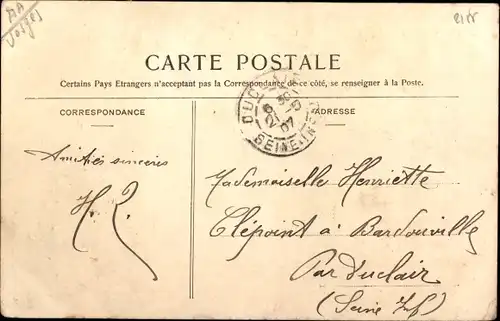 AA
Vosges
CARTE POSTALE
Certains Pays Etrangers n'acceptant pas la Correspondance de ce côté, se renseigner à la Poste.
CORRESPONDANCE
ADRESSE
DUCLAIR
SEINE-INF
Amitiés sincères
H. L.
Mademoiselle Henriette
Clépoint à Bardouville
Par Duclair
(Seine Inf)